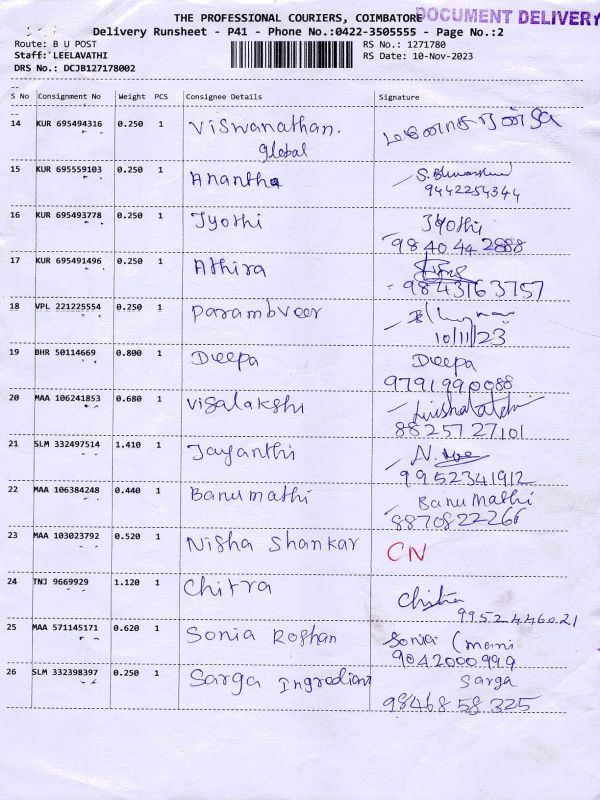 THE PROFESSIONAL COURIERS, COIMBATORE
DOCUMENT DELIVERY
Delivery Runsheet - P41 - Phone No.:0422-3505555 - Page No.:2
Route: B U POST
RS No.: 1271780
Staff: LEELAVATHI
RS Date: 10-Nov-2023
DRS No.: DCJB127178002
S No Consignment No Weight PCS Consignee Details Signature
14 KUR 695494316 0.250 1 Viswanathan.
Global
15 KUR 695559103 0.250 1 Anantha
9442254344
16 KUR 695493778 0.250 1 Jyothi Jyothi
98 40 44 2888
17 KUR 695491496 0.250 1 Athira
9843763757
18 VPL 221225554 0.250 1 Parambveer
10/11/23
19 BHR 50114669 0.800 1 Deepa Deepa
9791990088
20 MAA 106241853 0.680 1 Visalakshi
8825727101
21 SLM 332497514 1.410 1 Jayanthi
9952341912
22 MAA 106384248 0.440 1 Banumathi Banu Mathi
8870822266
23 MAA 103023792 0.520 1 Nisha Shankar CN
24 TNJ 9669929 1.120 1 Chitra Chitra
9952446021
25 MAA 571145171 0.620 1 Sonia Roshan Sonia (mani
9042000999
26 SLM 332398397 0.250 1 Sarga Ingredient Sarga
98468 58 325